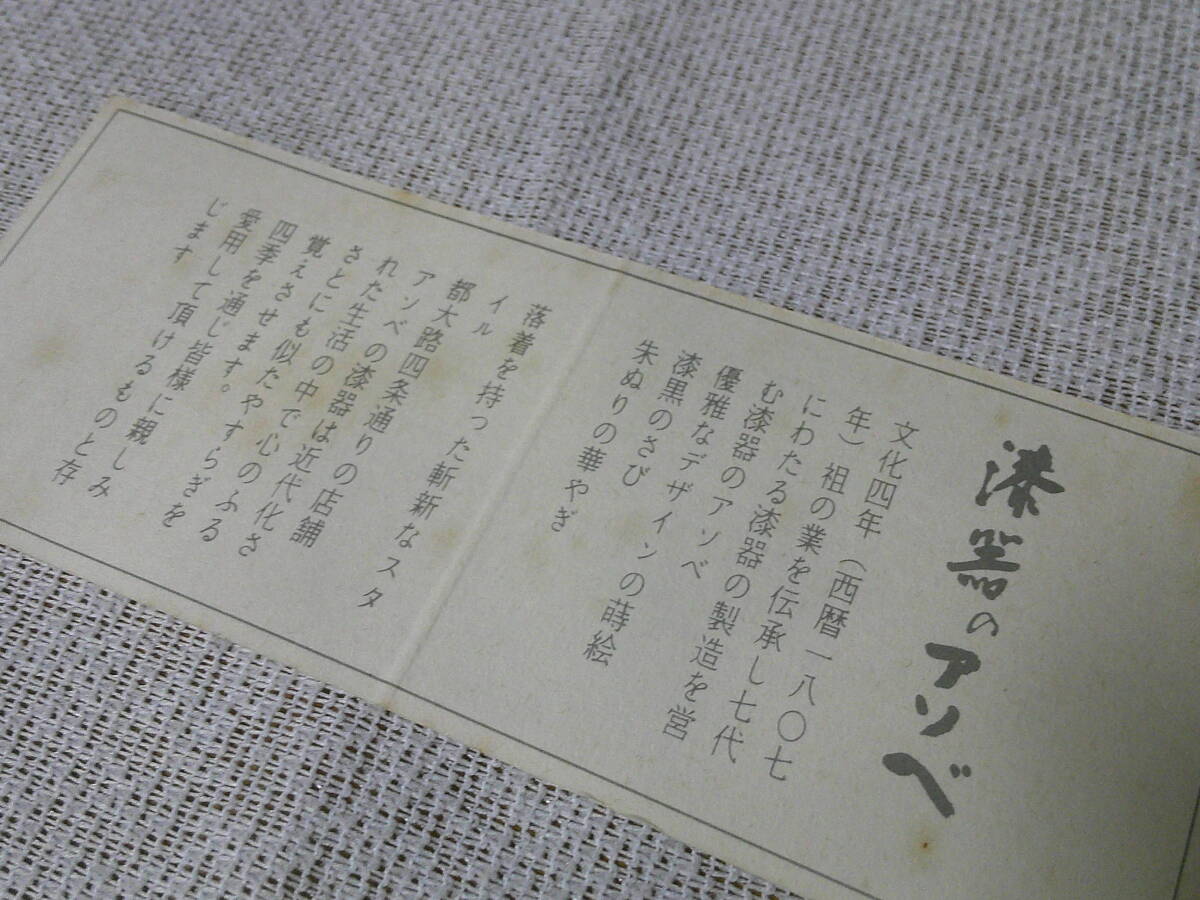 漆器のアソベ
文化四年（西暦一八〇七
年）祖の業を伝承し七代
にわたる漆器の製造を営
む漆器のアソベ
優雅なデザインの蒔絵
漆黒のさび
朱ぬりの華やぎ
落着を持った斬新なスタ
イル
都大路四条通りの店舗
アソベの漆器は近代化さ
れた生活の中で心のふる
さとにも似たやすらぎを
覚えさせます。
四季を通じ皆様に親しみ
愛用して頂けるものと存
じます